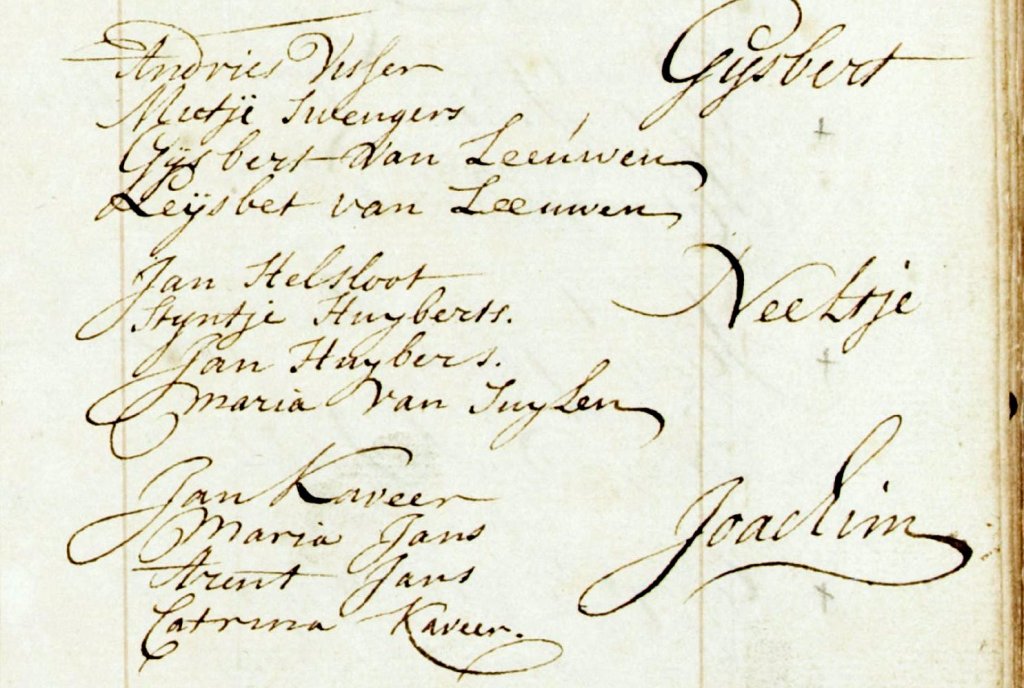 Andries Visser Gijsbert
Metje Swengers
Gijsbert Van Leeuwen
Leijsbet van Leeuwen
Jan Helsloot Neeltje
Styntje Huyberts.
Jan Huybers.
Maria Van Suylen
Jan Kaveer Joachim
Maria Jans
Arent Jans
Catrina Kaveer.